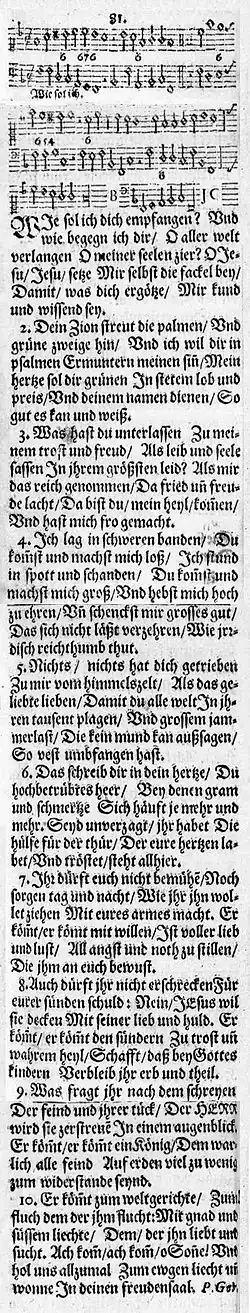 81.
6 676 6 6
Wie sol ich.
6 5 4 6
B JC
WIe sol ich dich empfangen? Vnd
wie begegn ich dir/ O aller welt
verlangen O meiner seelen zier? O Je-
su/ Jesu/ setze Mir selbst die fackel bey/
Damit/ was dich ergötze/ Mir kund
und wissend sey.
2. Dein Zion streut die palmen/ Vnd
grüne zweige hin/ Vnd ich wil dir in
psalmen Ermuntern meinen siñ/ Mein
hertze sol dir grünen In stetem lob und
preis/ Vnd deinem namen dienen/ So
gut es kan und weiß.
3. Was hast du unterlassen Zu mei-
nem trost und freud/ Als leib und seele
sassen In jhrem größsten leid? Als mir
das reich genommen/ Da fried uñ freu-
de lacht/ Da bist du/ mein heyl/ kom̃en/
Vnd hast mich fro gemacht.
4. Ich lag in schweren banden/ Du
kom̃st und machst mich loß/ Ich stund
in spott und schanden/ Du kom̃st und
machst mich groß/ Vnd hebst mich hoch
zu ehren/ Vñ schenckst mir grosses gut/
Das sich nicht läßt verzehren/ Wie jrr-
disch reichthumb thut.
5. Nichts/ nichts hat dich getrieben
Zu mir vom himmelszelt/ Als das ge-
liebte lieben/ Damit du alle welt In jh-
ren tausent plagen/ Vnd grossem jam-
merlast/ Die kein mund kan außsagen/
So vest umbfangen hast.
6. Das schreib dir in dein hertze/ Du
hochbetrübtes heer/ Bey denen gram
und schmertze Sich häuft je mehr und
mehr. Seyd unverzagt/ jhr habet Die
hülfe für der thür/ Der eure hertzen la-
bet/ Vnd tröstet/ steht allhier.
7. Ihr dürft euch nicht bemühẽ/ Noch
sorgen tag und nacht/ Wie jhr jhn wol-
let ziehen Mit eures armes macht. Er
köm̃t/ er köm̃t mit willen/ Ist voller lieb
und lust/ All angst und noth zu stillen/
Die jhm an euch bewust.
8. Auch dürft jhr nicht erschrecken Für
eurer sünden schuld: Nein/ JEsus wil
sie decken Mit seiner lieb und huld. Er
köm̃t/ er köm̃t den sündern Zu trost uñ
wahrem heyl/ Schafft/ daß bey Gottes
kindern Verbleib jhr erb und theil.
9. Was fragt jhr nach dem schreyen
Der feind und jhrer tück/ Der HERR
wird sie zerstreuẽ In einem augenblick.
Er köm̃t/ er köm̃t ein König/ Dem war-
lich alle feind Auf erden viel zu wenig
zum widerstande seynd.
10. Er köm̃t zum weltgerichte/ Zum
fluch dem der jhm flucht: Mit gnad und
süssem liechte/ Dem/ der jhn liebt und
sucht. Ach kom̃/ ach kom̃/ o Soñe! Vnd
hol uns allzumal Zum ewgen liecht uñ
wonne In deinen freudensaal. P. Ger.